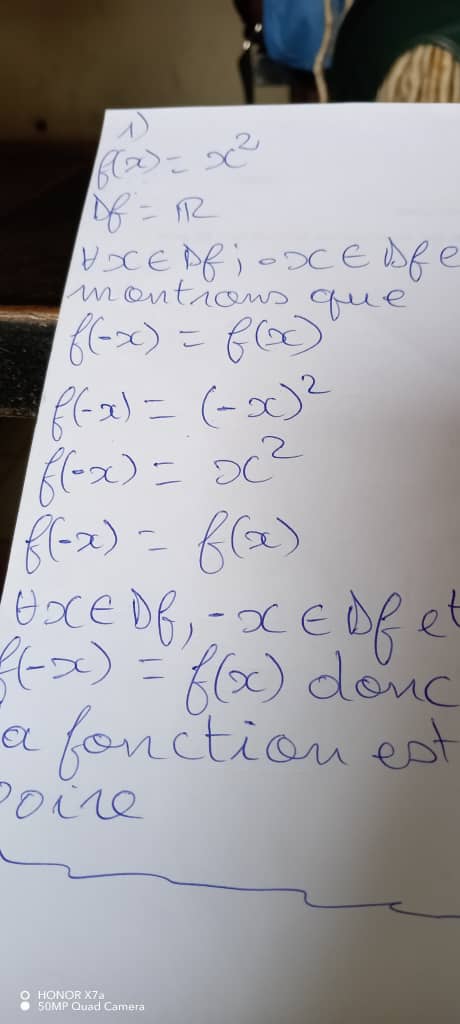 1)
f(x) = x²
Df = ℝ
∀x ∈ Df ; -x ∈ Df e
montrons que
f(-x) = f(x)
f(-x) = (-x)²
f(-x) = x²
f(-x) = f(x)
∀x ∈ Df, -x ∈ Df et
f(-x) = f(x) donc
a fonction est
poire
HONOR X7a
50MP Quad Camera